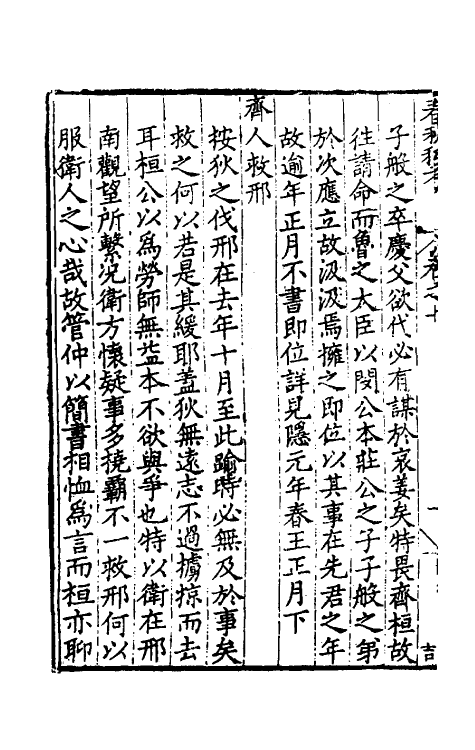 子般之卒慶父欲代必有謀於哀姜矣特畏齊桓故
往請命而魯之大臣以閔公本莊公之子子般之弟
於次應立故汲汲焉擁之即位以其事在先君之年
故逾年正月不書即位詳見隱元年春王正月下
齊人救邢
按狄之伐邢在去年十月至此踰時必無及於事矣
救之何以若是其緩耶盖狄無遠志不過擄掠而去
耳桓公以為勞師無益本不欲與爭也特以衛在邢
南觀望所繫況衛方懷疑事多撓霸不一救邢何以
服衛人之心哉故管仲以簡書相恤為言而桓亦聊